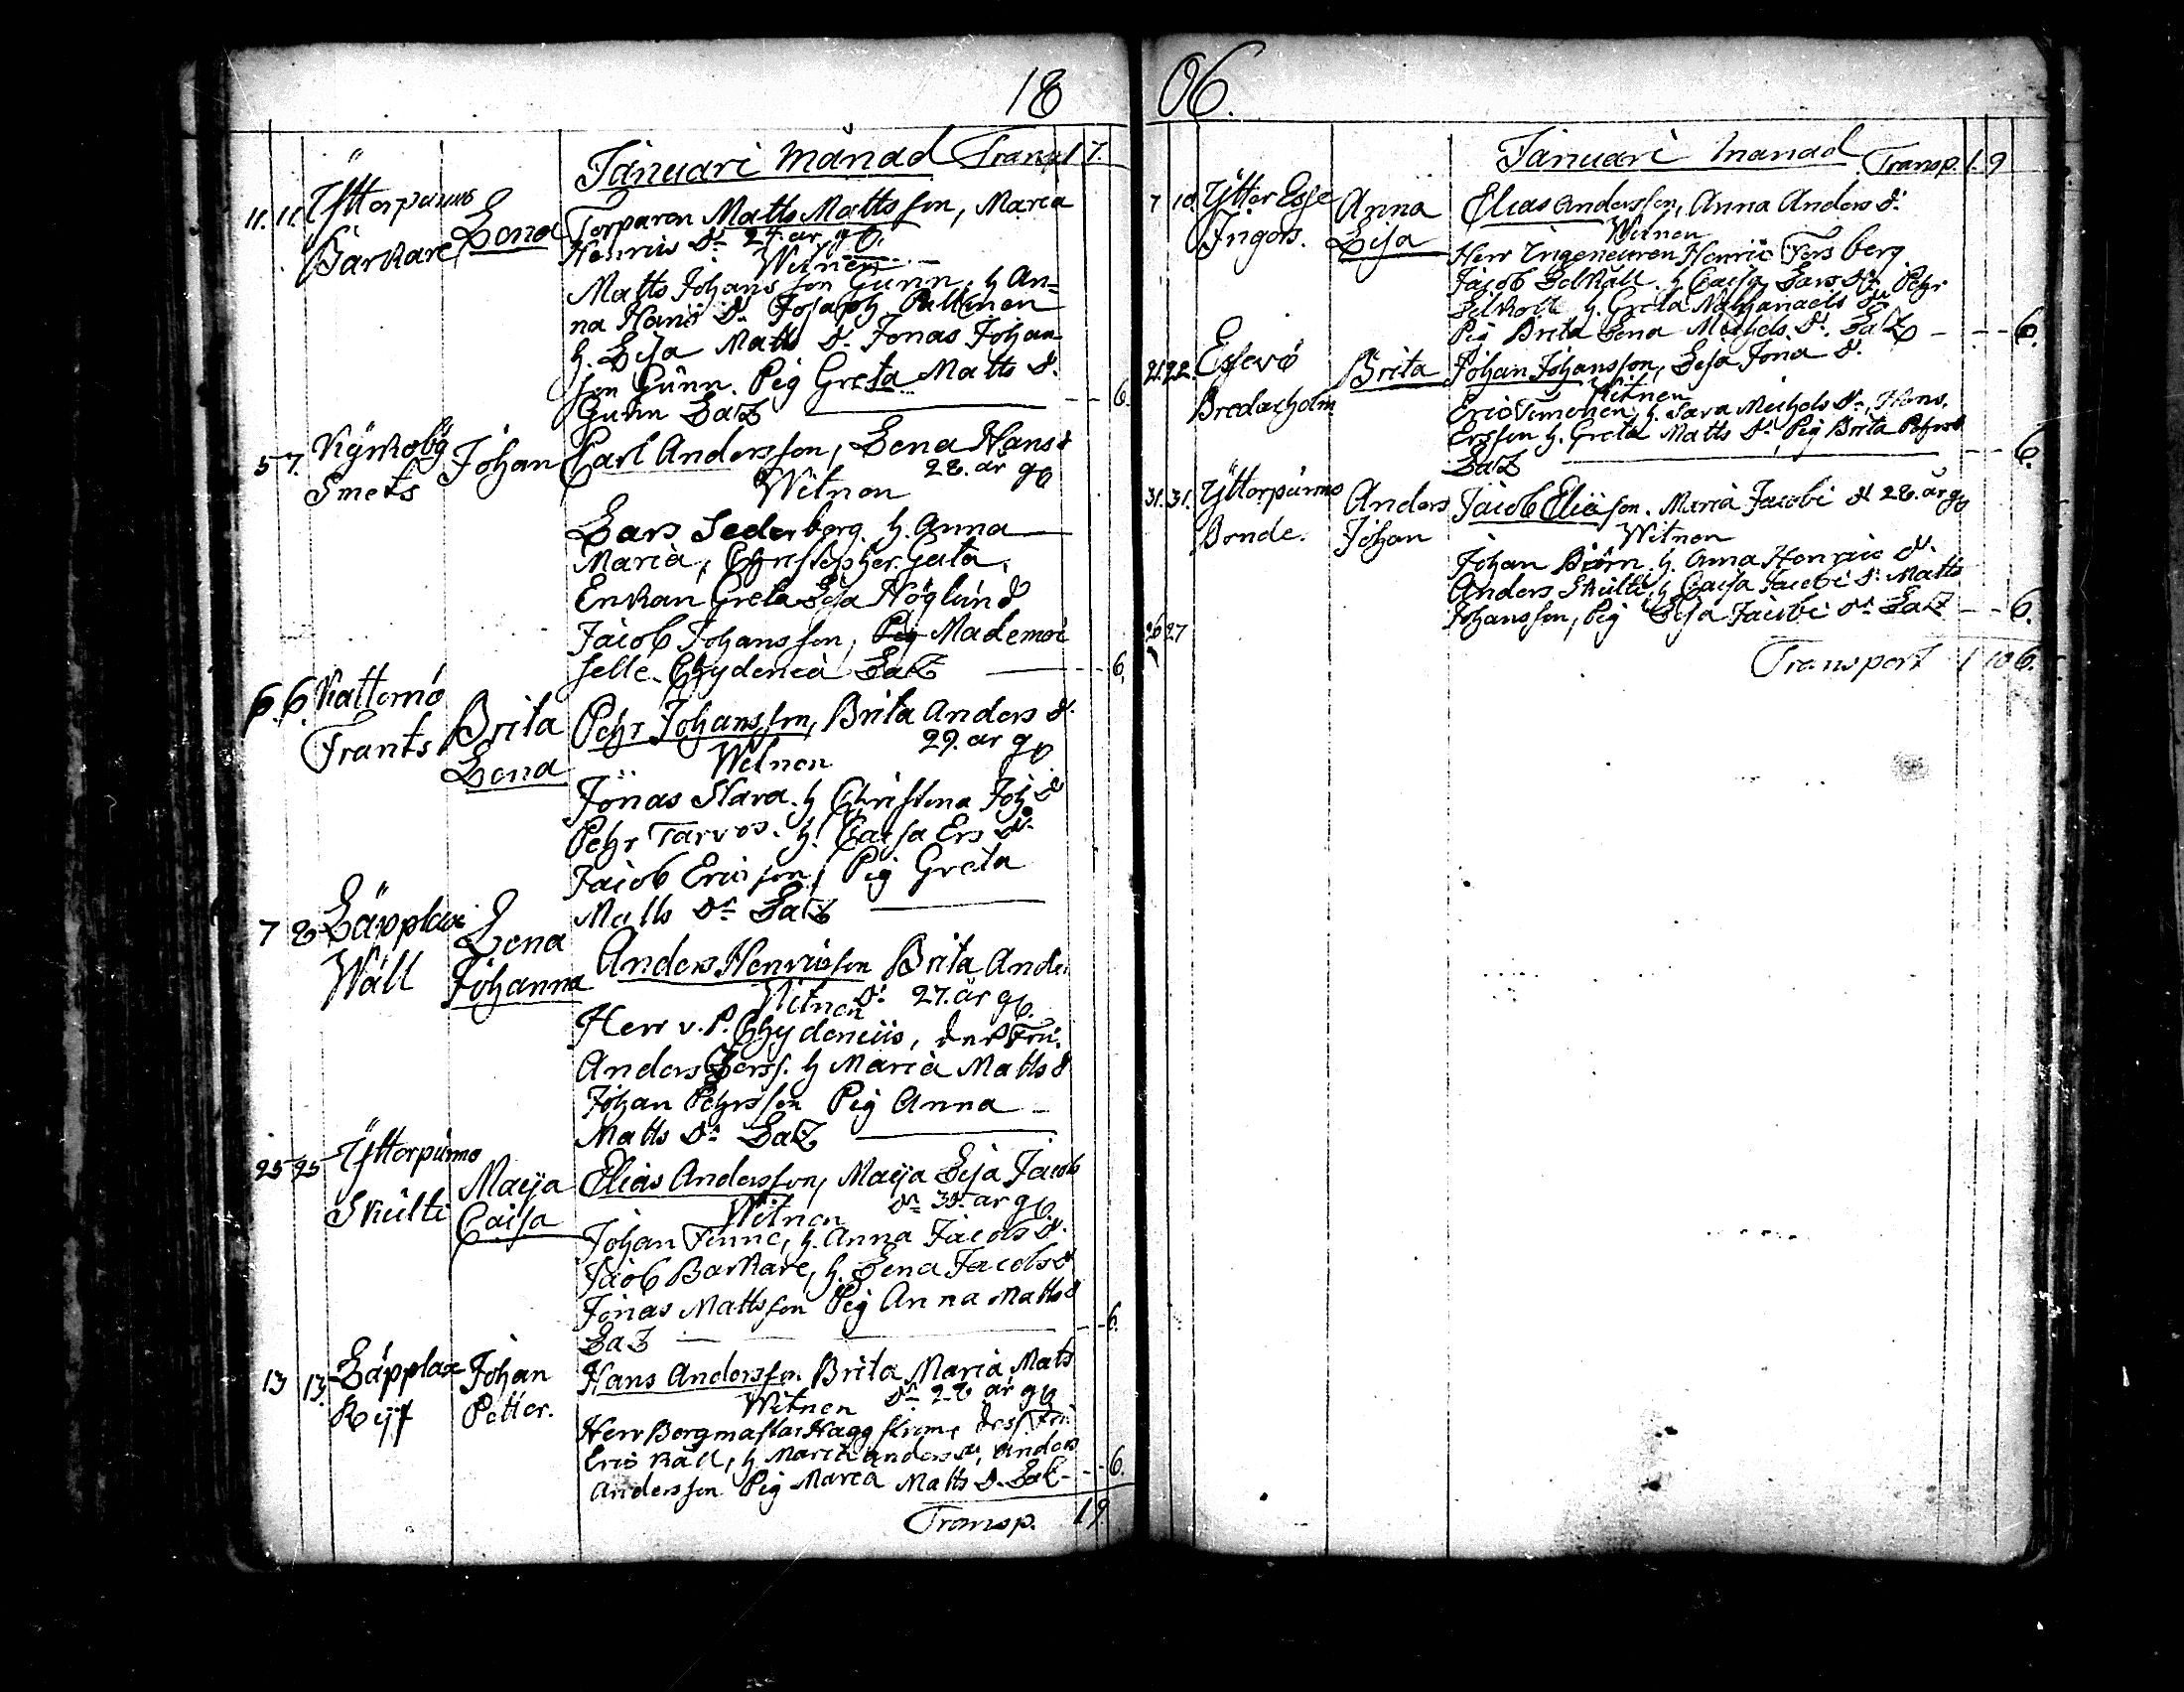 18
Januari Månad Transp. 1 7.
11. 11. Ytterpurmo Lena Torparen Matts Mattsson, Maria
Barkare Henrics dr. 24. år g.
Witnen
Matts Johansson Gunn, h. An-
na Hans dr. Joseph Pullinen
h. Lisa Matts dr. Jonas Johan-
son Gunn. Pig Greta Matts dr.
Gunn Satz 6.
5 7. Kyrkoby Johan Carl Andersson, Lena Hans d
Smets 28. år g.
Witnen
Lars Sederberg. h. Anna
Maria, Christopher Gata,
Enkan Greta Lisa Höglund
Jacob Johansson, Pig Mademoi
selle Chydenia Satz 6.
6. 6. Kattornö Brita Pehr Johansson, Brita Anders dr.
Frants Lena 29. år g.
Witnen
Jonas Slara. h Christina Joh d
Pehr Tarvos. h. Caisa Ers dr.
Jacob Ericsson, Pig Greta
Matts dr. Satz
7 8 Lappfors Lena Anders Henricsson Brita Anders
Wäll Johanna dr. 27. år g.
Witnen
Herr v. P. Chydenius, dess Fru.
Anders Larss. h Maria Matts d
Johan Pehrsson Pig Anna
Matts dr. Satz
25 25 Ytterpurmo Maija Elias Andersson, Maija Lisa Jacobs
Skutti Caisa dr. 35. år g.
Witnen
Johan Finne, h. Anna Jacobs dr.
Jacob Barkare, h. Lena Jacobs d
Jonas Mattsson Pig Anna Matts d
Satz 6.
13 13. Lappfors Johan Hans Andersson Brita Maria Mats
Reijf Petter. dr. 28 år g.
Witnen
Herr Borgmästar Haggström, dess Fru
Eric Käll, h Maria Anders dr, Anders
Andersson Pig Maria Matts d. Satz 6.
Transp. 1 9.
06.
Januari Månad Transp. 1. 9
7 10. Ytter Esse Anna Elias Andersson, Anna Anders dr.
Ingors. Lisa Witnen
Herr Ingenieuren Henric Forsberg
Jacob Lillkåll. h Caisa Lars dr. Pehr
Lillkåll h. Greta Nathanaels dr
Pig Brita Lena Michels dr. Satz 6.
21. 22. Essevö Brita Johan Johansson, Lisa Jona dr.
Bredarholm Witnen
Eric Timonen, h. Sara Michels dr, Hans
Ersson h. Greta Matts dr. Pig Brita Pehrs d
Satz 6.
31. 31. Ytterpurmo Anders Jacob Eliæson. Maria Jacobi dr 28. år g.
Bonde. Johan Witnen
Johan Biörn. h. Anna Henrics dr.
Anders Skutti, h Caisa Jacobi dr. Matts
Johansson, Pig Lisa Jacobi dr. Satz 6.
26 27
Transport 1 10 6.